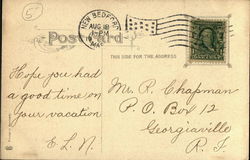 5
NEW BEDFORD
AUG 18
PM
MASS.
Post Card
THIS SIDE FOR THE ADDRESS
Hope you had
a good time on
your vacation
E. L. N.
Mr. R. Chapman
P. O. Box 12
Georgiaville
R. I.